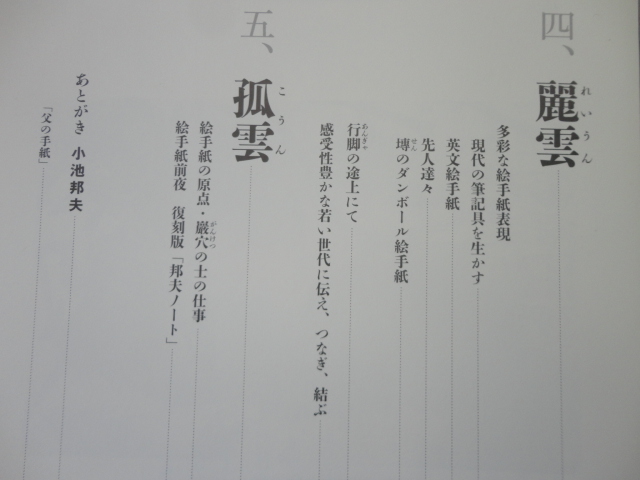 四、麗雲
れいうん
多彩な絵手紙表現
現代の筆記具を生かす
英文絵手紙
先人達々
塼のダンボール絵手紙
せん
行脚の途上にて
あんぎゃ
感受性豊かな若い世代に伝え、つなぎ、結ぶ
五、孤雲
こうん
絵手紙の原点・巖穴の士の仕事
がんけつ
絵手紙前夜 復刻版「邦夫ノート」
あとがき 小池邦夫
「父の手紙」